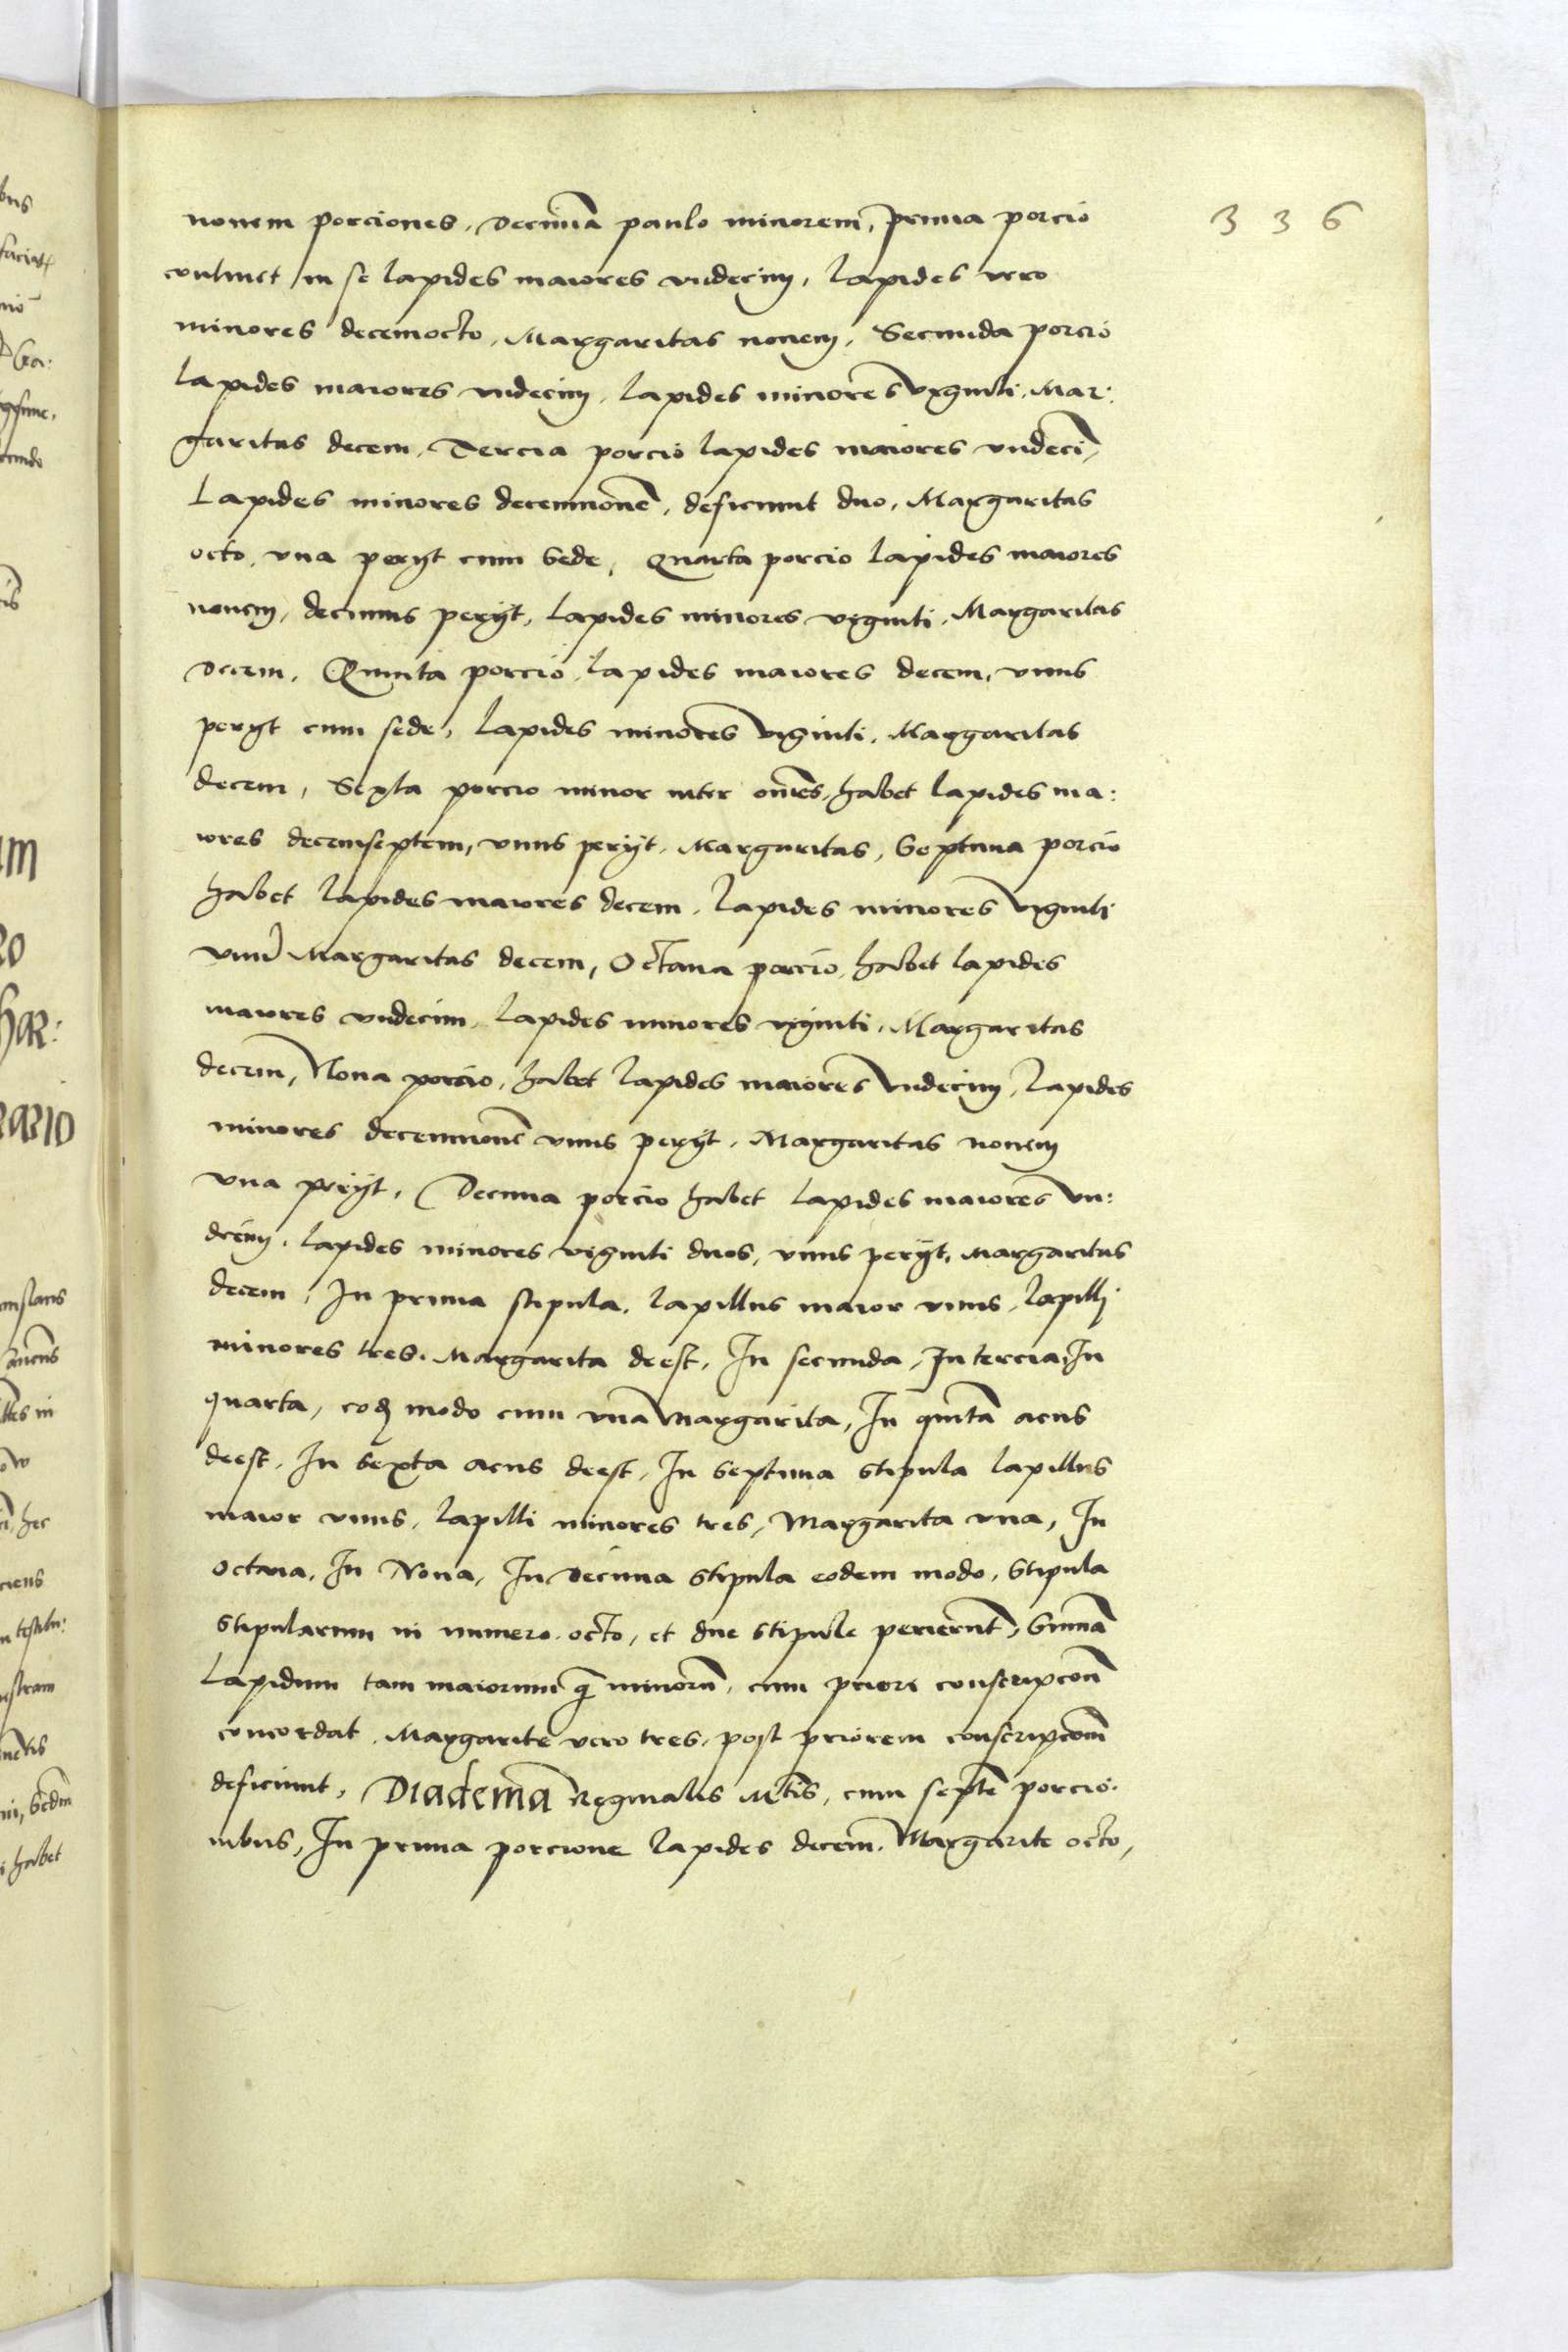 336
nonem porciones, decimã paulo minorem, prima porcio
continet in se lapides maiores vndecim, lapides vero
minores decemocto, Margaritas nonem, Secunda porcio
lapides maiores vndecim, lapides minores viginti, Mar:
garitas decem, Tercia porcio lapides maiores vndeci͂,
Lapides minores decemnone͂, deficiunt duo, Margaritas
octo, vna perijt cum sede, Quarta porcio lapides maiores
nonem, decimus perijt, lapides minores viginti, Margaritas
decem, Quinta porcio, lapides maiores decem, vnus
perijt cum sede, lapides minores viginti, Margaritas
decem, Sexta porcio minor inter om̃es, habet lapides ma:
iores decemseptem, vnus perijt, Margaritas, Septima porcio
habet lapides maiores decem, lapides minores viginti
vnu͂ Margaritas decem, Octaua porcio, habet lapides
maiores vndecim, lapides minores viginti, Margaritas
decem, Nona porcio, habet lapides maiores vndecim, lapides
minores decemnone͂ vnus perijt, Margaritas nonem
vna perijt, Decima porcio habet lapides maiores vn:
decim, lapides minores viginti duos, vnus perijt, Margaritas
decem, In prima stipula, lapillus maior vnus, lapilli
minores tres, Margarita deest, In secunda, In tercia, In
quarta, eod͂ modo cum vna Margarita, In quinta acus
deest, In sexta acus deest, In septima stipula lapillus
maior vnus, lapilli minores tres, Margarita vna, In
Octaua, In Nona, In decima stipula eodem modo, Stipula
stipularum in numero octo, et due stipule perierũt, Sum̃a
Lapidum tam maiorum q̃ minorũ, cum priori conscripcoñ
concordat, Margarite vero tres, post priorem conscripcom̃
deficiunt, Diadema Reginalis M̃tis, cum septe͂ porcio:
nibus, In prima porcione lapides decem, Margarite octo,